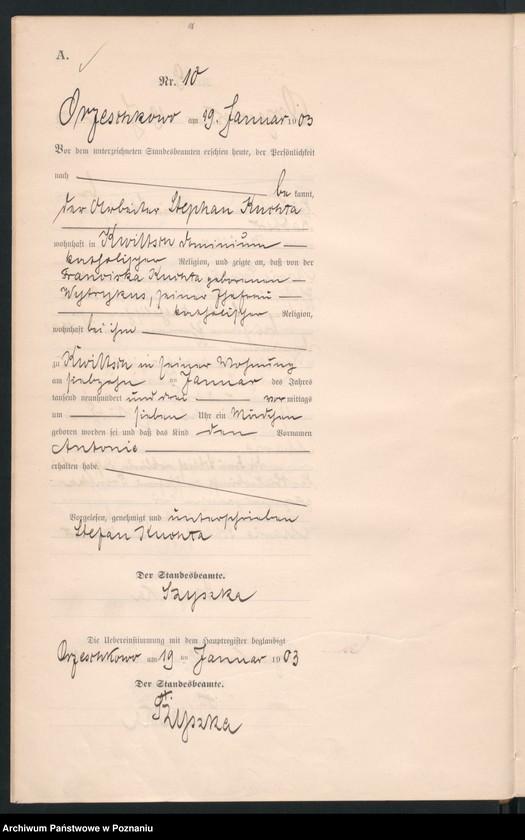 A.
Nr. 10
Orzeschkowo am 19. Januar 1903
Vor dem unterzeichneten Standesbeamten erschien heute, der Persönlichkeit
nach be kannt,
der Arbeiter Stephan
wohnhaft in Kwiltsch Dominium
katholischer Religion, und zeigte an, daß von der
Franziska geborenen
seiner Ehefrau
katholischer Religion,
wohnhaft bei ihm
zu Kwiltsch in seiner Wohnung
am siebzehn ten Januar des Jahres
tausend neunhundert und drei vor mittags
um sieben Uhr ein Mädchen
geboren worden sei und daß das Kind den Vornamen
Antonie
erhalten habe.
Vorgelesen, genehmigt und unterschrieben
Stefan
Der Standesbeamte.
Szyszka
Die Uebereinstimmung mit dem Hauptregister beglaubigt
Orzeschkowo am 19 ten Januar 1903
Der Standesbeamte.
Szyszka
Archiwum Państwowe w Poznaniu